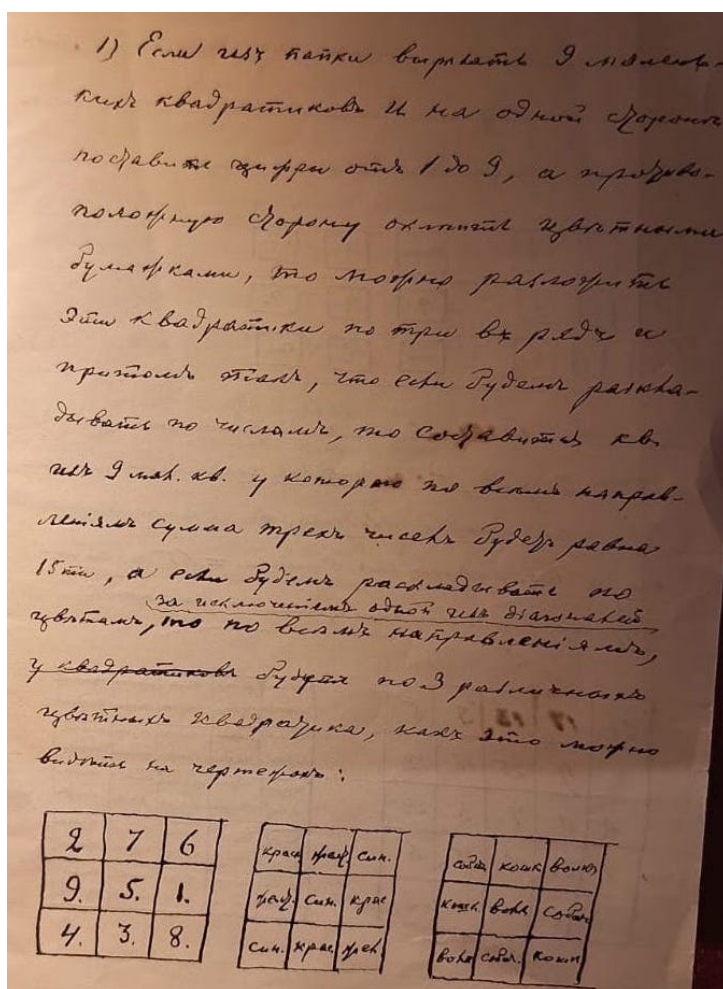 1) Если изъ папки вырѣзать 9 малень-
кихъ квадратиковъ и на одной сторонѣ
поставить цифры отъ 1 до 9, а противо-
положную сторону оклеить цвѣтными
бумажками, то можно разложить
эти квадратики по три въ рядъ и
притомъ такъ, что если будемъ раскла-
дывать по числамъ, то составится кв.
изъ 9 мал. кв. у котораго по всѣмъ направ-
леніямъ сумма трехъ чиселъ будетъ равна
15ти, а если будемъ раскладывать по
за исключеніемъ одной изъ діагоналей
цвѣтамъ, то по всѣмъ направленіямъ,
у квадратиковъ будутъ по 3 различныхъ
цвѣтныхъ квадратика, какъ это можно
видѣть на чертежахъ:
2 7 6 красн син. собак кошк волкъ
9. 5. 1. син. крас кошк. волк собак
4. 3. 8. син. крас. волк собач. кошк